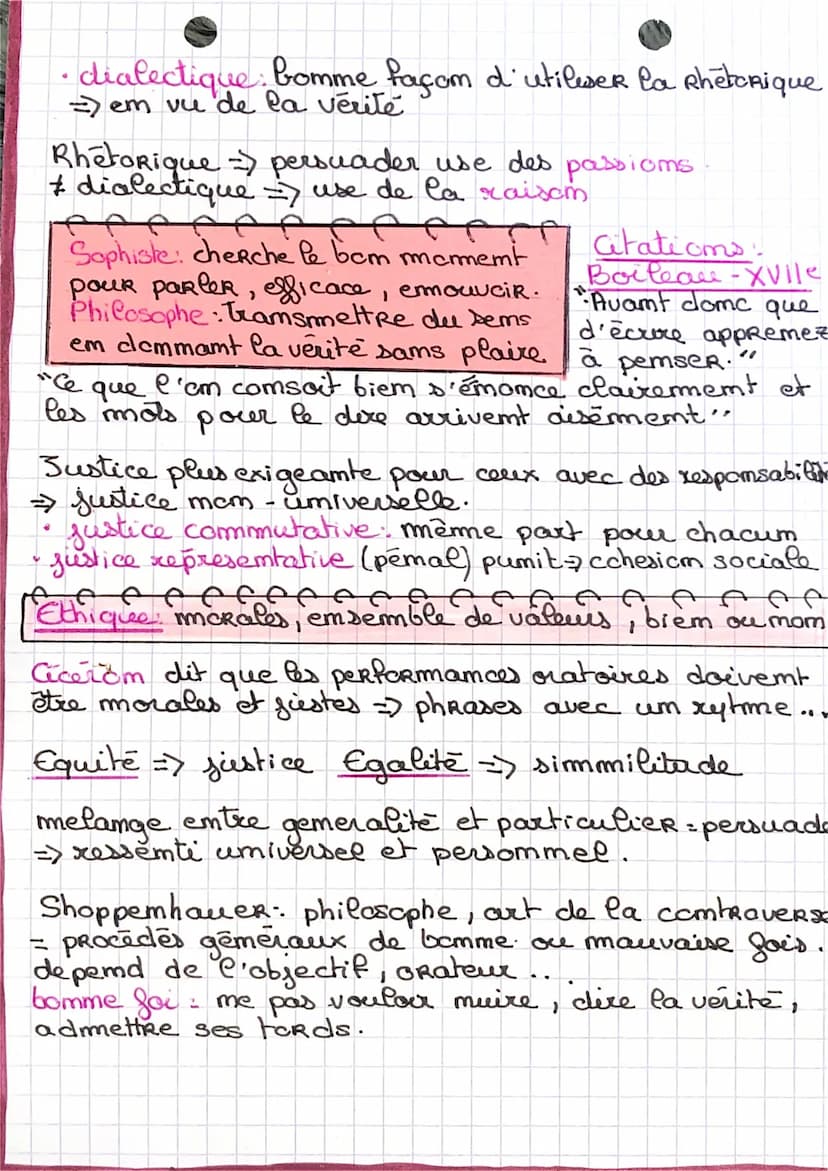 · dialectique: bonne façon d'utiliser la Rhétorique
=> en vu de la vérité
Rhétorique => persuader use des passions.
≠ dialectique => use de la raison
Sophiste: cherche le bon moment
pour parler, efficace, emouvoir.
Philosophe: Transmettre du sens
en donnant la vérité sans plaire
Citations:
Boileau - XVIIe
"Avant donc que
d'écrire apprenez
à penser."
"Ce que l'on consoit bien s'énonce clairement et
les mots pour le dire arrivent aisément"
Justice plus exigeante pour ceux avec des responsabilité
=> justice non-universelle.
· justice commutative: même part pour chacun
· justice représentative (pénal) punit => cohesion sociale
Ethique: morales, ensemble de valeurs, bien ou non
Cicéron dit que les performances oratoires doivent
être morales et justes => phrases avec un rytme...
Equité => justice Egalité => simmilitade
melange entre generalité et particulier = persuade
=> ressenti universel et personnel.
Shoppenhauer: philosophe, art de la contraverse
= procédés généraux de bonne ou mauvaise fois.
depend de l'objectif, orateur..
bonne foi: ne pas vouloir nuire, dire la vérité,
admettre ses tords.